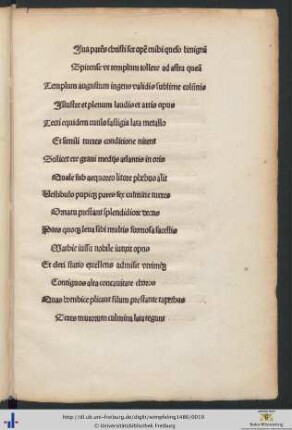 Jua parēs christi fer opē mihi queso benignū
Spirense ut templum tollere ad astra queā
Templum augustum ingens validis sublime colūnis
Illustre et plenum laudis et artis opus
Tecti equidem rutilo fastigia lata metallo
Et simili turres conditione nitent
Scilicet ere gravi medijs atlantis in oris
Quale sub aequoreo litore plebius alit
Vestibulo pupiq; pares sex culmine turres
Ornatu prestant splendidiore decus
quoq; leva sibi multis formosa sacellis
iussu nobile iunxit opus
Et dextra statio excellens admisit
Contiguos alta concavitate choros
Quas bombice plicant filum prestante
Teres murorum culmina lata tegunt
http://dl.ub.uni-freiburg.de/diglit/wimpfeling1486/0019
© Universitätsbibliothek Freiburg
Baden-Württemberg